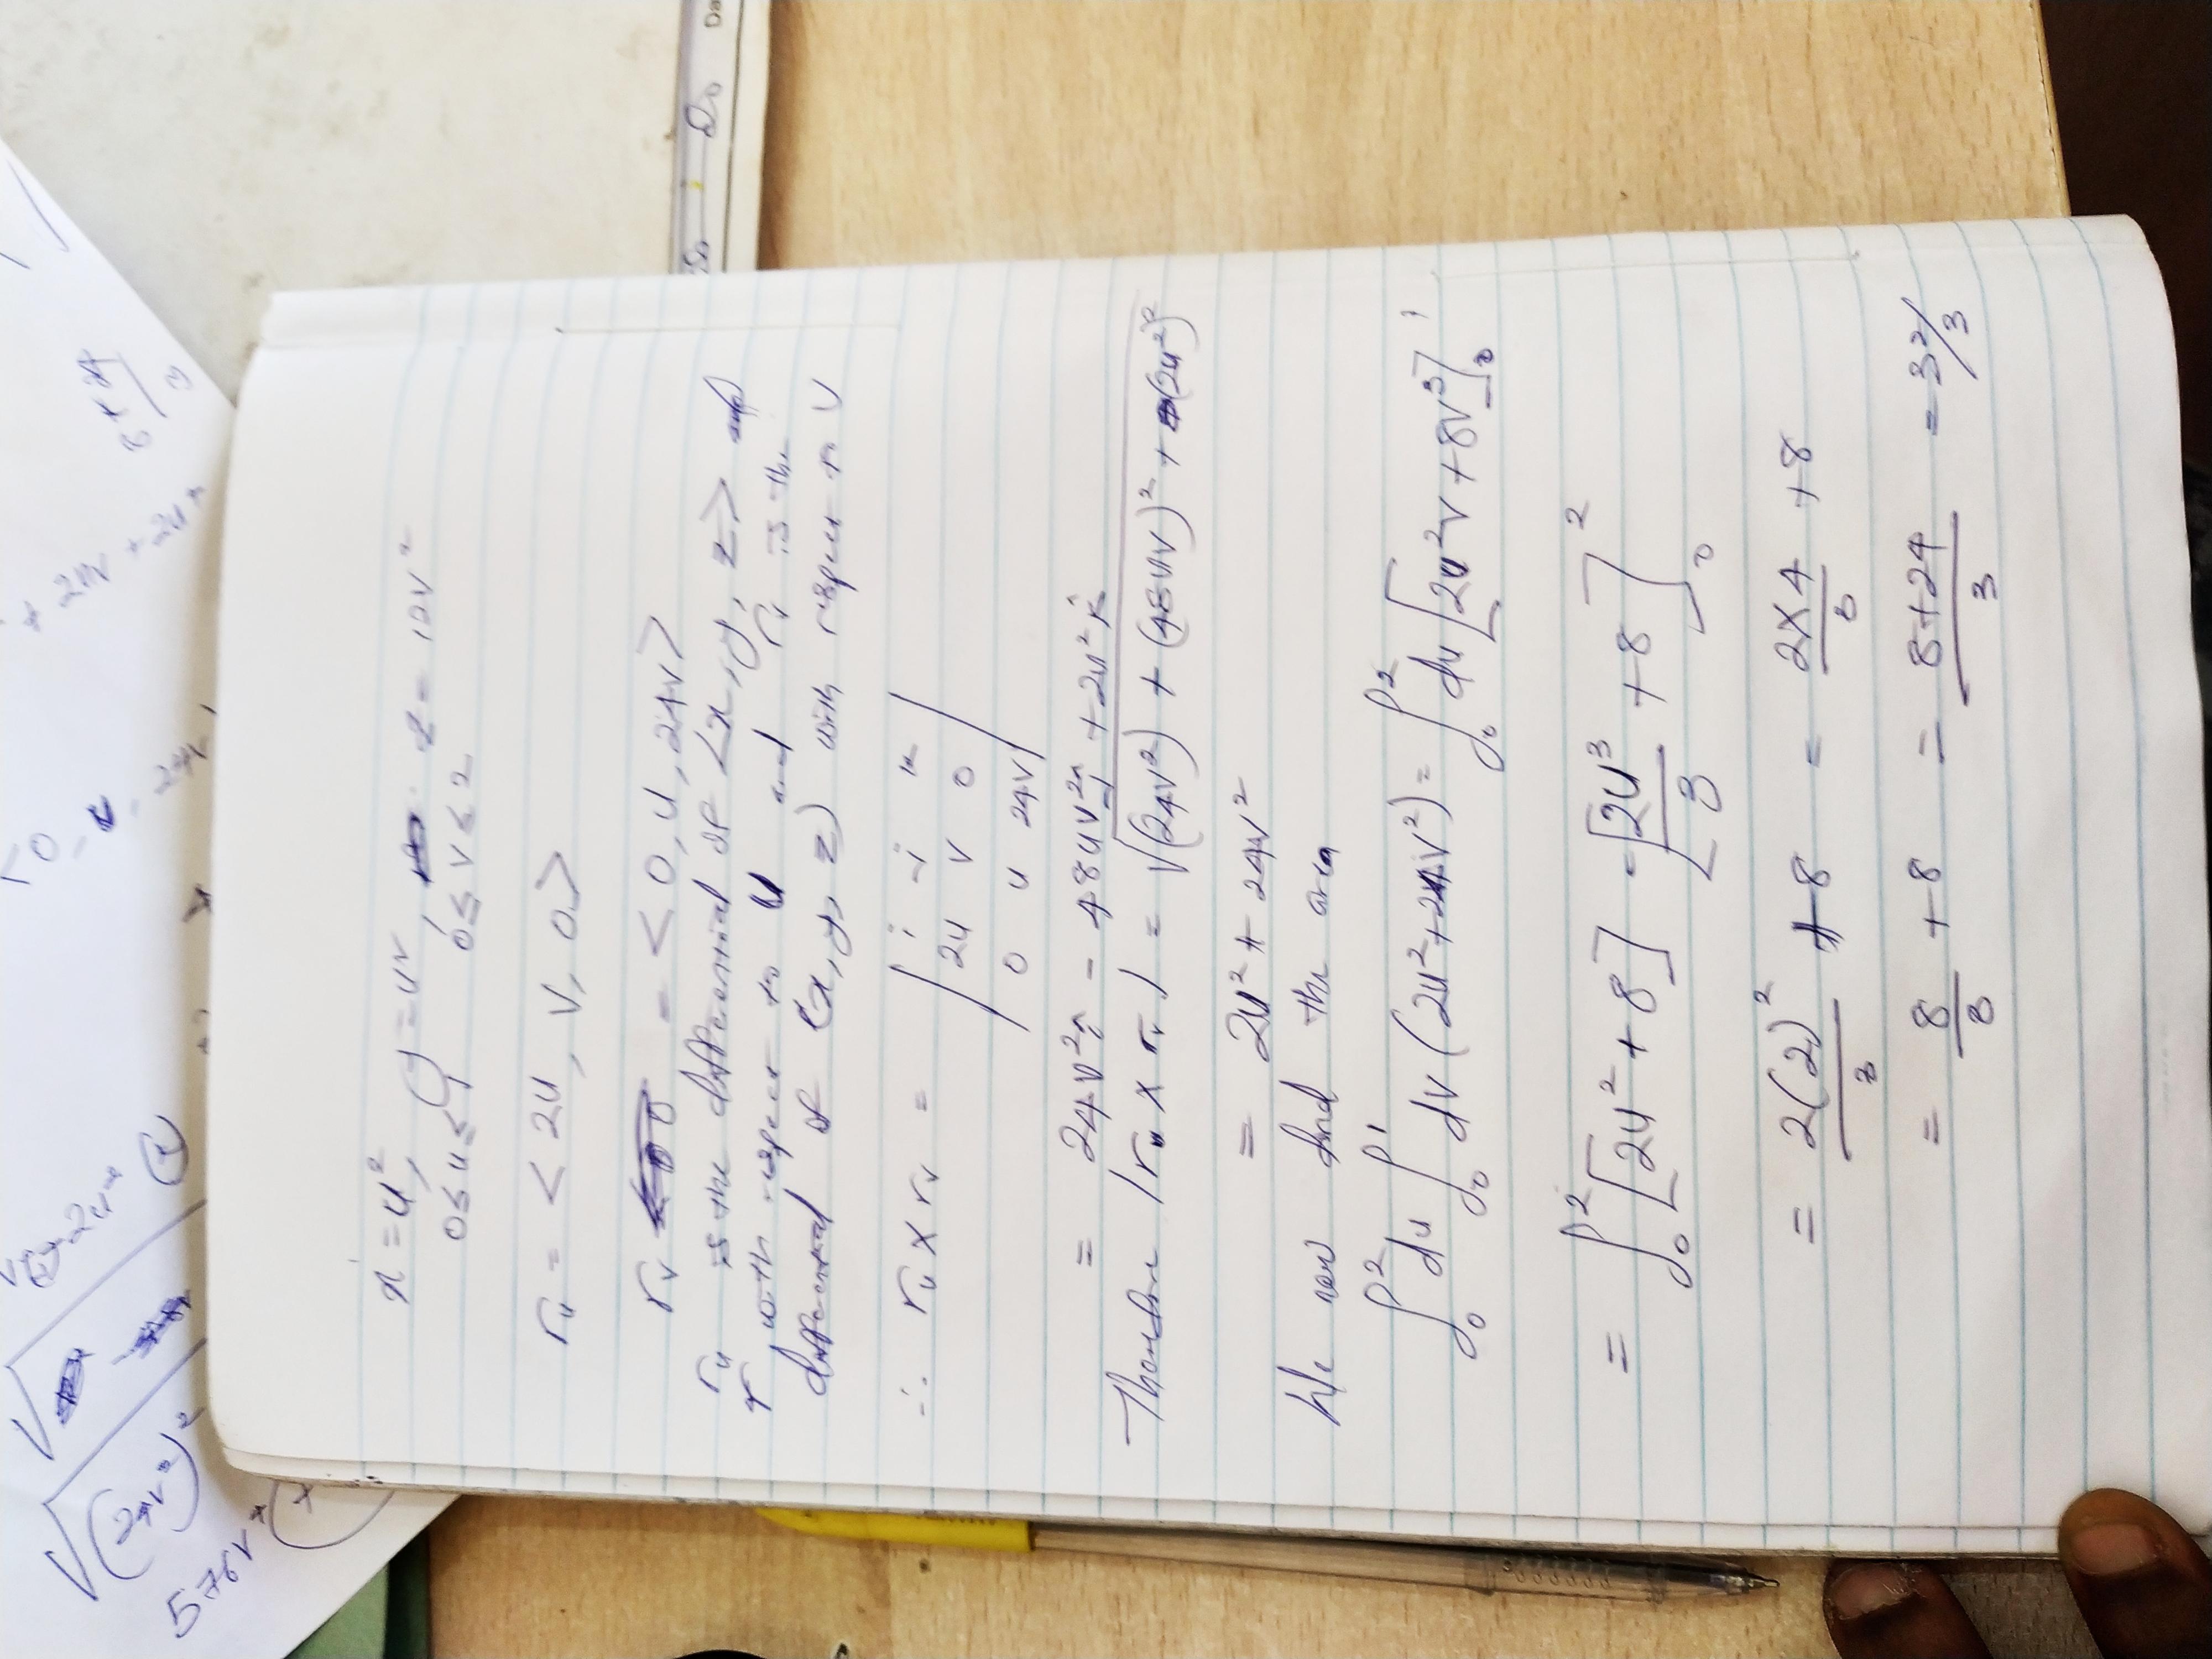 x = u², y = uv, z = 12v²
0 ≤ u ≤ 1 0 ≤ v ≤ 2
rᵤ = < 2u, v, 0 >
rᵥ = < 0, u, 24v >
rᵤ is the differential of <x, y, z> of
r with respect to u and rᵥ is the
differential of (x, y, z) with respect to v
∴ rᵤ × rᵥ = | i j k
2u v 0
0 u 24v |
= 24v² i - 48uv j + 2u² k
Therefore |rᵤ × rᵥ| = √(24v²) + (48uv)² + (2u²)²
= 2u² + 24v²
We now find the area
∫₀² du ∫₀¹ dv (2u² + 24v²) = ∫₀² du [2u²v + 8v³]₀¹
= ∫₀² [2u² + 8] = [2u³/3 + 8]₀²
= 2(2)²/3 + 8 = 2×4/3 + 8
= 8/3 + 8 = 8+24/3 = 32/3
√(24v²)²
576v⁴